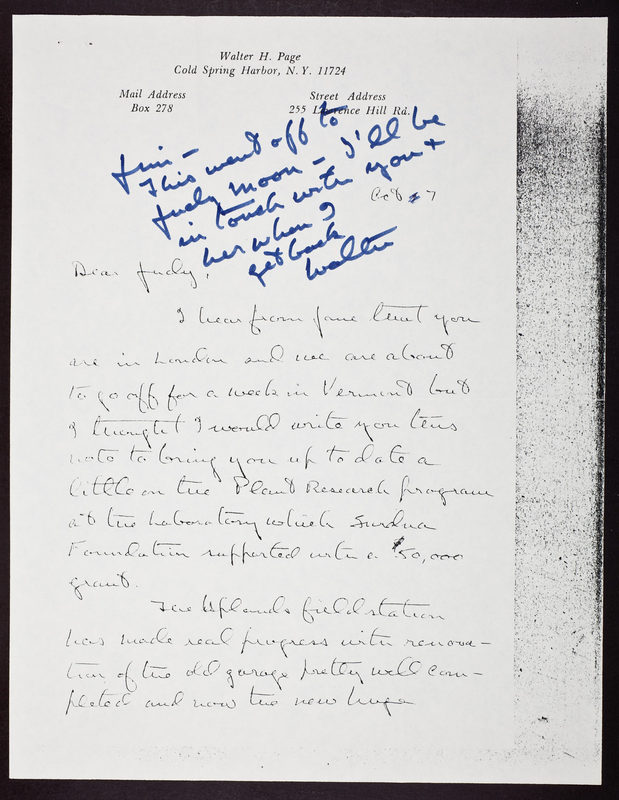 Walter H. Page
Cold Spring Harbor, N. Y. 11724
Mail Address
Box 278
Street Address
255 Lawrence Hill Rd.
Jim -
This went off to
Judy Moon - I'll be
in touch with you +
her when I
get back
Walter
Oct 7
Dear Judy,
I hear from Jane that you
are in London and we are about
to go off for a week in Vermont but
I thought I would write you this
note to bring you up to date a
little on the Plant Research program
at the Laboratory which Surdna
Foundation supported with a $50,000
grant.
The Uplands field station
has made real progress with renova-
tion of the old garage pretty well com-
pleted and now the new huge